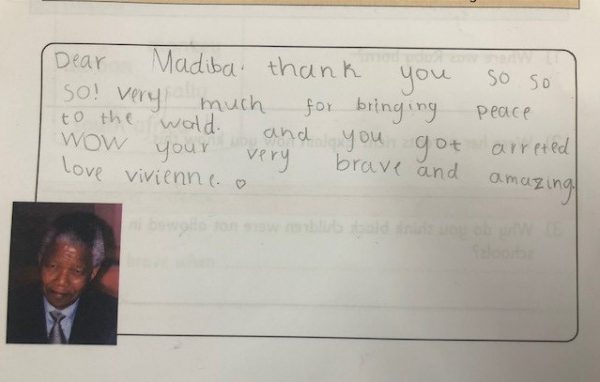 Dear Madiba. thank you so so
so! very much for bringing peace
to the wold. and you got arreted
wow your very brave and amazing.
love vivienne.